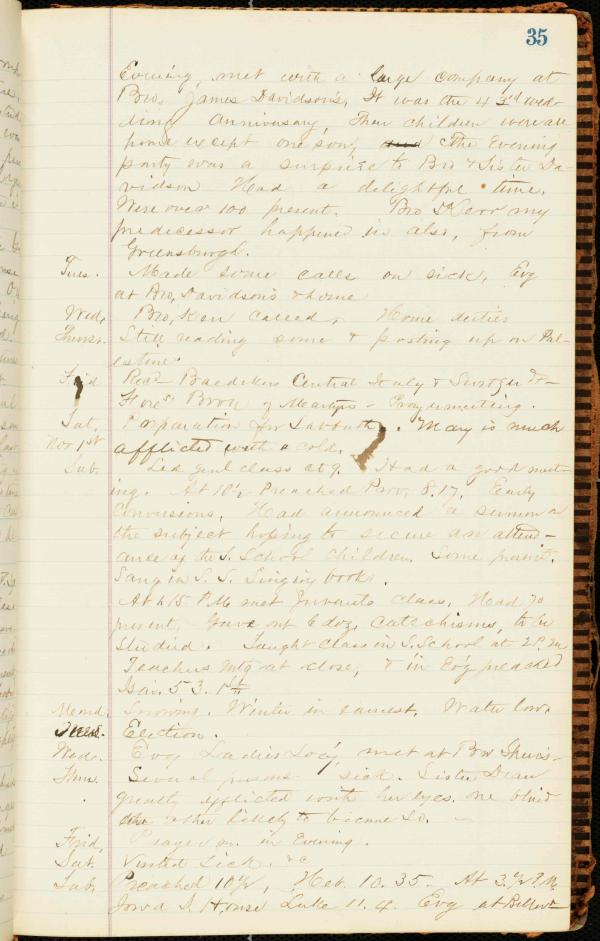 35
Evening, met with a large company at
Bro. James Davidson's, It was the 43rd wed-
ding anniversary, Their children were all
home except one son, and The Evening
party was a surprise to Bro & Sister Da-
vidson Had a delightful time.
Were over 100 present. Bro D Kerr my
predecessor happened in also, from
Greensburgh.
Tues. Made some calls on sick, Evg
at Bro, Davidson's & home
Wed, Bro, Kerr called, Home duties
Thurs. Still reading some & posting up on Pal-
estine.
Frid Read Baedekers Central Italy &
Book of Martyrs - Prayermeeting.
Sat, Preparation for Sabbath. Mary is much
Nov 1st afflicted with a cold.
Sab. Led girl class at 9. Had a good meet-
ing. At 10½ Preached Prov. 8.17, Early
Conversions, Had announced a sermon on
the subject hoping to secure an attend-
ance of the S. School children. Some present.
Sang in S. S. Singing book.
At P.M. met Juvenile class, Head 70
present, Gave out Edoz, catechisms, to be
Studied. Taught class in S. School at 2 P.M.
Teachers mtg at close, & in Ev'g preached
Isai. 53. 1st
Mond. Snowing. Winter in earnest. Water low.
Tues. Election.
Wed. Evg Ladies Soc'y met at Bro
Thur. Several persons sick. Sister Dean
greatly afflicted with her eyes. one blind
the other likely to become so.
Frid, Prayer m. in Evening.
Sat. Visited Sick. &c
Sab, Preached 10½, Heb. 10.35. At 3½ P.M.
S. House Luke 11.4. Evg at